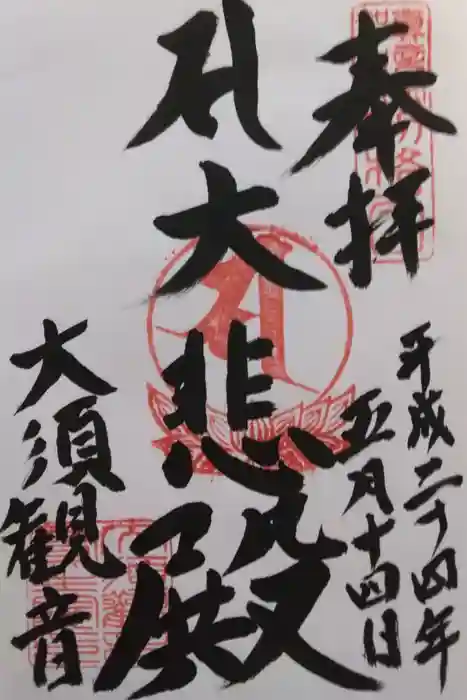 奉拝
平成二十四年
五月十四日
𑖭大悲殿
大須観音